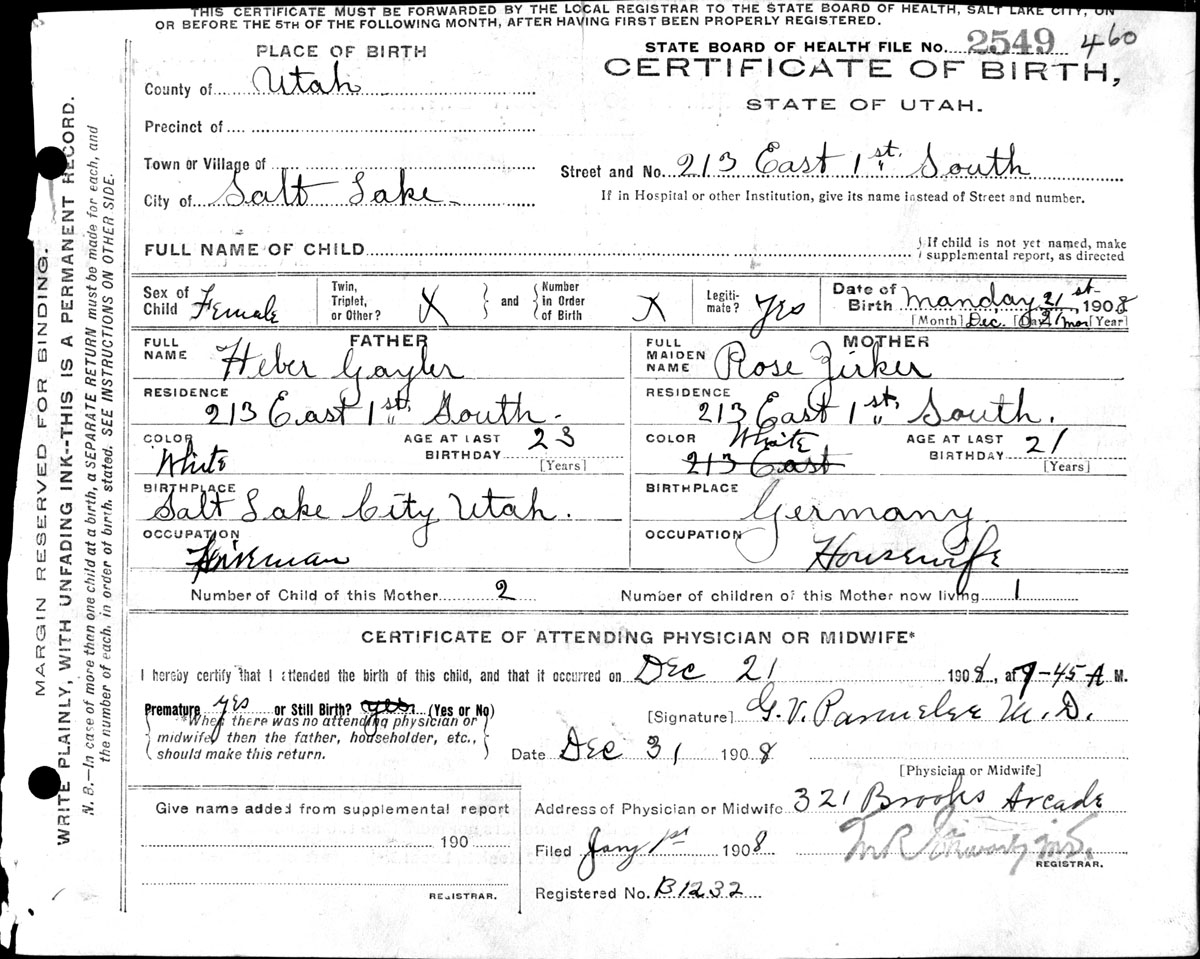 THIS CERTIFICATE MUST BE FORWARDED BY THE LOCAL REGISTRAR TO THE STATE BOARD OF HEALTH, SALT LAKE CITY, ON
OR BEFORE THE 5TH OF THE FOLLOWING MONTH, AFTER HAVING FIRST BEEN PROPERLY REGISTERED.
MARGIN RESERVED FOR BINDING.
WRITE PLAINLY, WITH UNFADING INK--THIS IS A PERMANENT RECORD.
N. B.—In case of more then one child at a birth, a SEPARATE RETURN must be made for each, and
the number of each, in order of birth, stated. SEE INSTRUCTIONS ON OTHER SIDE.
PLACE OF BIRTH
STATE BOARD OF HEALTH FILE No. 2549 460
CERTIFICATE OF BIRTH,
STATE OF UTAH.
County of Utah
Precinct of
Town or Village of
Street and No. 213 East 1st. South
City of Salt Lake
If in Hospital or other Institution, give its name instead of Street and number.
FULL NAME OF CHILD
If child is not yet named, make
supplemental report, as directed
Sex of Child Female
Twin, Triplet, or Other? X
and
Number in Order of Birth X
Legitimate? Yes
Date of Birth Manday 21st 1908
[Month] Dec. [Day] 21 [Year]
FATHER
FULL NAME Heber Gayler
MOTHER
FULL MAIDEN NAME Rose Zirker
RESIDENCE 213 East 1st. South.
RESIDENCE 213 East 1st. South.
COLOR White
AGE AT LAST BIRTHDAY 23 [Years]
COLOR White 213 East
AGE AT LAST BIRTHDAY 21 [Years]
BIRTHPLACE Salt Lake City Utah.
BIRTHPLACE Germany
OCCUPATION
OCCUPATION Housewife
Number of Child of this Mother 2
Number of children of this Mother now living 1
CERTIFICATE OF ATTENDING PHYSICIAN OR MIDWIFE*
I hereby certify that I attended the birth of this child, and that it occurred on Dec 21 1908, at 9-45-A M.
Premature yes or Still Birth? yes. (Yes or No)
*When there was no attending physician or
midwife, then the father, householder, etc.,
should make this return.
[Signature] G. V. Parmelee M.D.
Date Dec 31 1908
[Physician or Midwife]
Give name added from supplemental report
190
REGISTRAR.
Address of Physician or Midwife 321 Brooks Arcade
Filed Jany 1st 1908
REGISTRAR.
Registered No. B1232